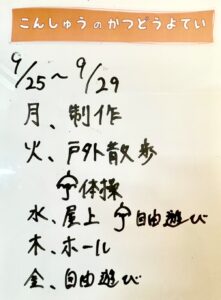 こんしゅうのかつどうよてい
9/25～9/29
月、制作
火、戸外散歩
☂体操
水、屋上 ☂自由遊び
木、ホール
金、自由遊び